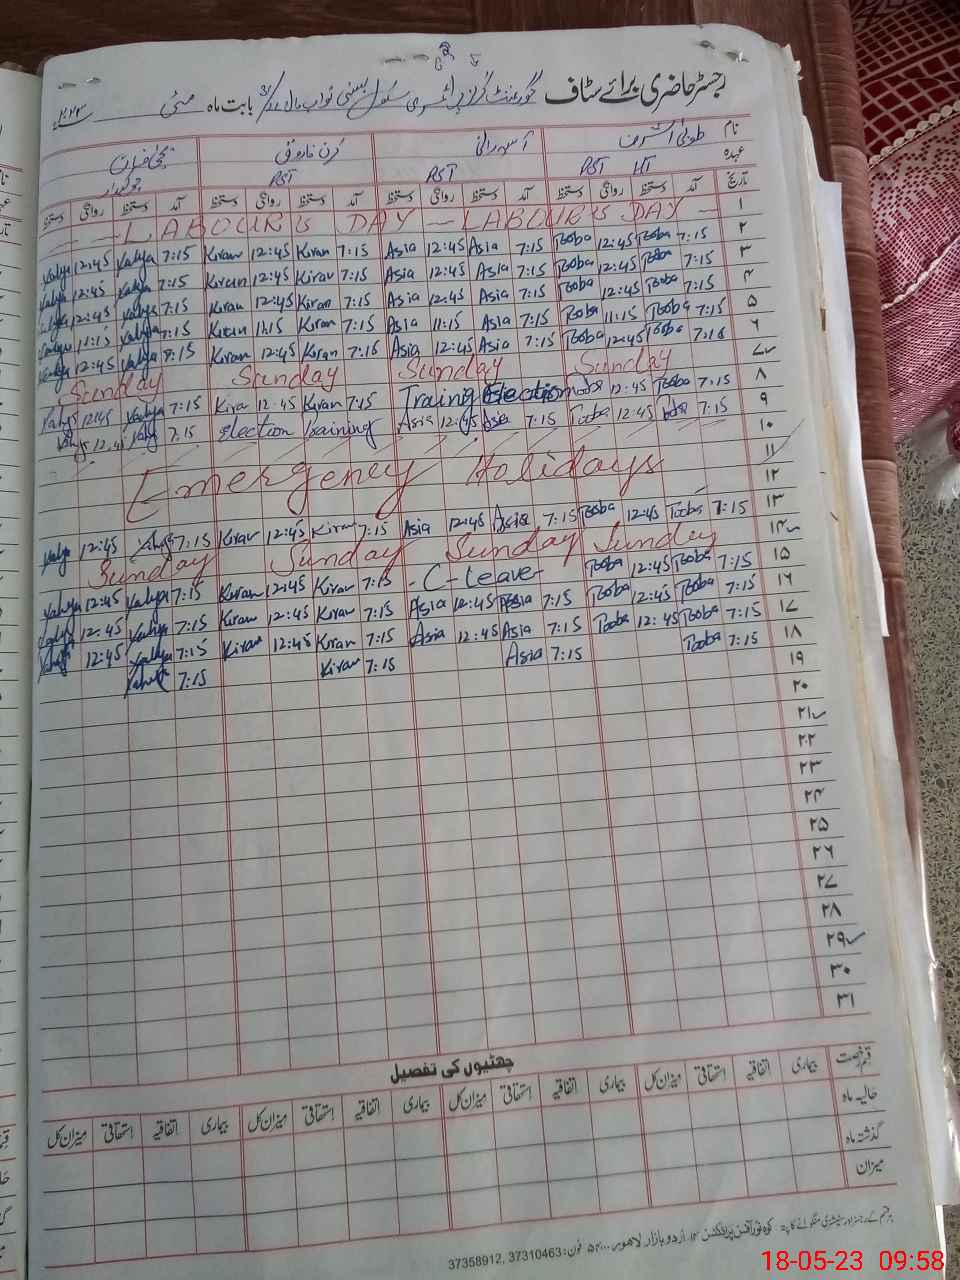 رجسٹر حاضری برائے سٹاف گورنمنٹ گرلز پرائمری سکول بستی نواب بابت ماہ مئی
نام طوبیٰ اشرف آسیہ رانی کرن فاروق
عہدہ PST HT PST PST چوکیدار
تاریخ آمد دستخط روانگی دستخط آمد دستخط روانگی دستخط آمد دستخط روانگی دستخط آمد دستخط روانگی دستخط
۱ - - LABOUR's DAY - LABOUR's DAY -
۲ Yahya 12:45 Yahya 7:15 Kiran 12:45 Kiran 7:15 Asia 12:45 Asia 7:15 Tooba 12:45 Tooba 7:15
۳ Yahya 12:45 Yahya 7:15 Kiran 12:45 Kiran 7:15 Asia 12:45 Asia 7:15 Tooba 12:45 Tooba 7:15
۴ Yahya 12:45 Yahya 7:15 Kiran 12:45 Kiran 7:15 Asia 12:45 Asia 7:15 Tooba 12:45 Tooba 7:15
۵ Yahya 11:15 Yahya 7:15 Kiran 11:15 Kiran 7:15 Asia 11:15 Asia 7:15 Tooba 11:15 Tooba 7:15
۶ Yahya 12:45 Yahya 7:15 Kiran 12:45 Kiran 7:15 Asia 12:45 Asia 7:15 Tooba 12:45 Tooba 7:15
۷ Sunday Sunday Sunday Sunday
۸ Yahya 12:45 Yahya 7:15 Kiran 12:45 Kiran 7:15 Training Election 12:45 Tooba 7:15
۹ Yahya 12:45 Yahya 7:15 Election Training Asia 12:45 Asia 7:15 Tooba 12:45 Tooba 7:15
۱۰
۱۱ Emergency Holidays
۱۲
۱۳ Yahya 12:45 Yahya 7:15 Kiran 12:45 Kiran 7:15 Asia 12:45 Asia 7:15 Tooba 12:45 Tooba 7:15
۱۴ Sunday Sunday Sunday Sunday
۱۵ Yahya 12:45 Yahya 7:15 Kiran 12:45 Kiran 7:15 - C-Leave - Tooba 12:45 Tooba 7:15
۱۶ Yahya 12:45 Yahya 7:15 Kiran 12:45 Kiran 7:15 Asia 12:45 Asia 7:15 Tooba 12:45 Tooba 7:15
۱۷ Yahya 12:45 Yahya 7:15 Kiran 12:45 Kiran 7:15 Asia 12:45 Asia 7:15 Tooba 12:45 Tooba 7:15
۱۸ Yahya 7:15 Kiran 7:15 Asia 7:15 Tooba 7:15
۱۹
۲۰
۲۱
۲۲
۲۳
۲۴
۲۵
۲۶
۲۷
۲۸
۲۹
۳۰
۳۱
چھٹیوں کی تفصیل
قسم رخصت بیماری اتفاقیہ استحقاقی میزان کل بیماری اتفاقیہ استحقاقی میزان کل بیماری اتفاقیہ استحقاقی میزان کل بیماری اتفاقیہ استحقاقی میزان کل
حالیہ ماہ
گذشتہ ماہ
میزان
ہر قسم کے رجسٹر اور سٹیشنری منگوانے کا پتہ: کوہ نور آفس پراڈکٹس اردو بازار لاہور فون: 37310463, 37358912
18-05-23 09:58